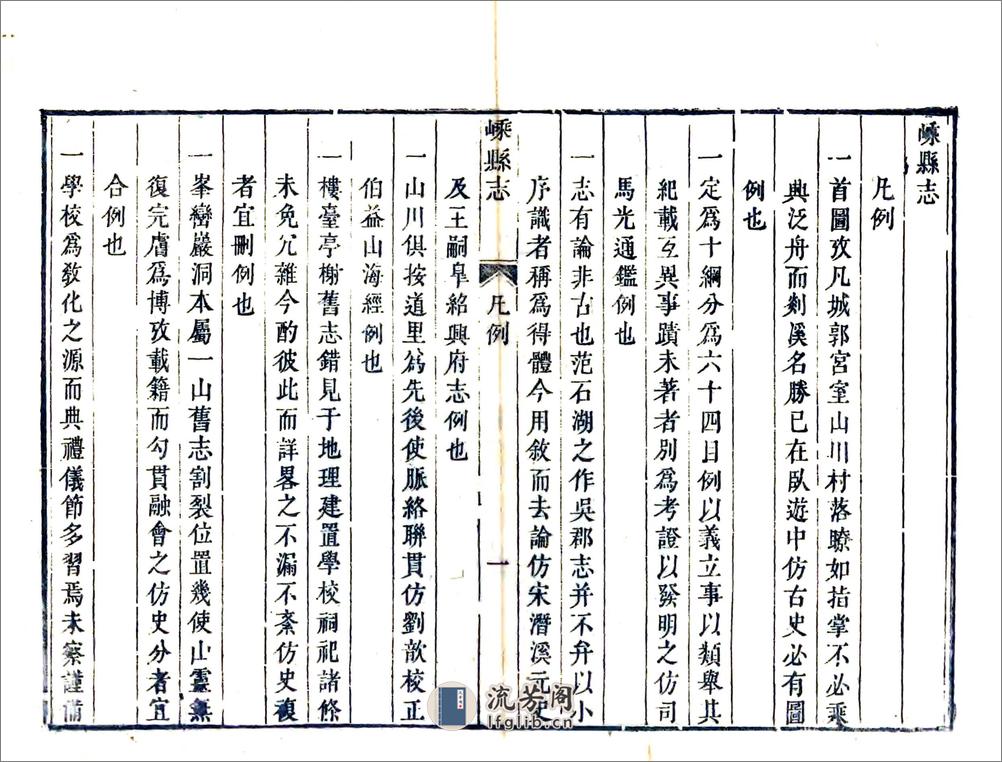 嵊縣志
凡例
一首圖攷凡城郭宮室山川村落瞭如指掌不必乘
輿泛舟而剡溪名勝已在臥遊中仿古史必有圖
例也
一定爲十綱分爲六十四目例以義立事以類舉其
紀載互異事蹟未著者別爲考證以發明之仿司
馬光通鑑例也
一志有論非古也范石湖之作吳郡志并不弁以小
序識者稱爲得體今用敘而去論仿宋潛溪元史
嵊縣志 凡例 一
及王嗣臯紹興府志例也
一山川俱按道里爲先後使脈絡聯貫仿劉歆校正
伯益山海經例也
一樓臺亭榭舊志錯見于地理建置學校祠祀諸條
未免冗雜今酌彼此而詳畧之不漏不紊仿史複
者宜刪例也
一峯巒巖洞本屬一山舊志割裂位置幾使山靈無
復完膚爲博攷載籍而勾貫融會之仿史分者宜
合例也
一學校爲敎化之源而典禮儀節多習焉未察謹備
流芳阁
lfglib.cn